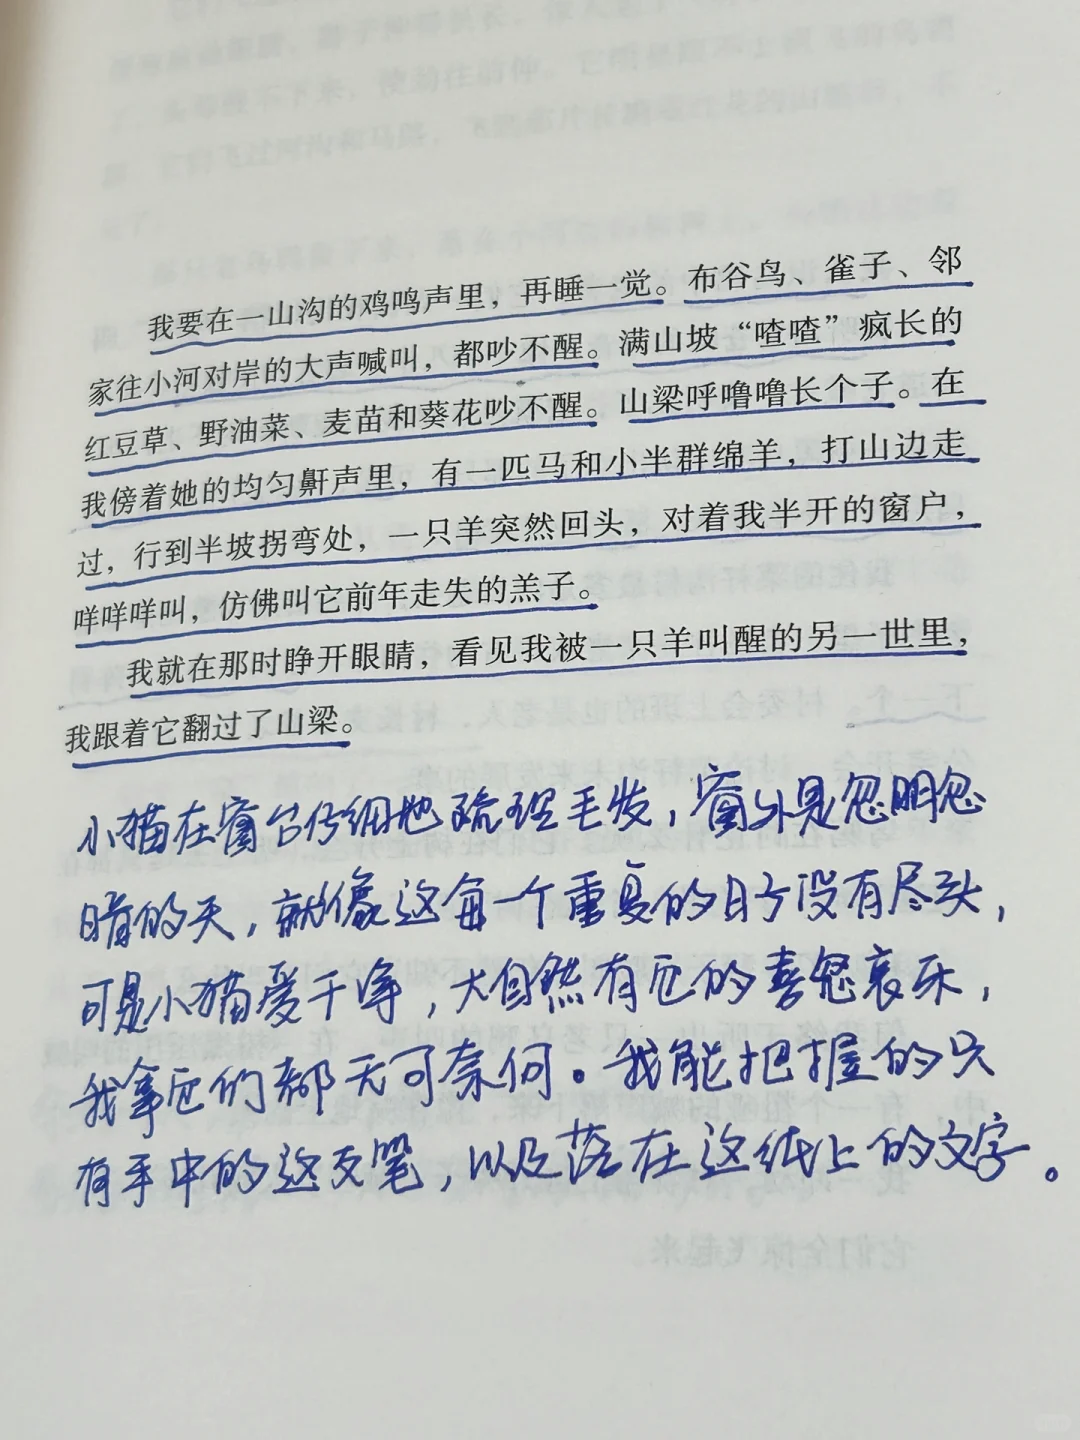 我要在一山沟的鸡鸣声里，再睡一觉。布谷鸟、雀子、邻
家往小河对岸的大声喊叫，都吵不醒。满山坡“喳喳”疯长的
红豆草、野油菜、麦苗和葵花吵不醒。山梁呼噜噜长个子。在
我傍着她的均匀鼾声里，有一匹马和小半群绵羊，打山边走
过，行到半坡拐弯处，一只羊突然回头，对着我半开的窗户，
咩咩咩叫，仿佛叫它前年走失的羔子。
我就在那时睁开眼睛，看见我被一只羊叫醒的另一世里，
我跟着它翻过了山梁。
小猫在窗台仔细地疏理毛发，窗外是忽明忽
暗的天，就像这每一个重复的日子没有尽头，
可是小猫爱干净，大自然有它的喜怒哀乐，
我拿它们都无可奈何。我能把握的只
有手中的这支笔，以及落在这纸上的文字。